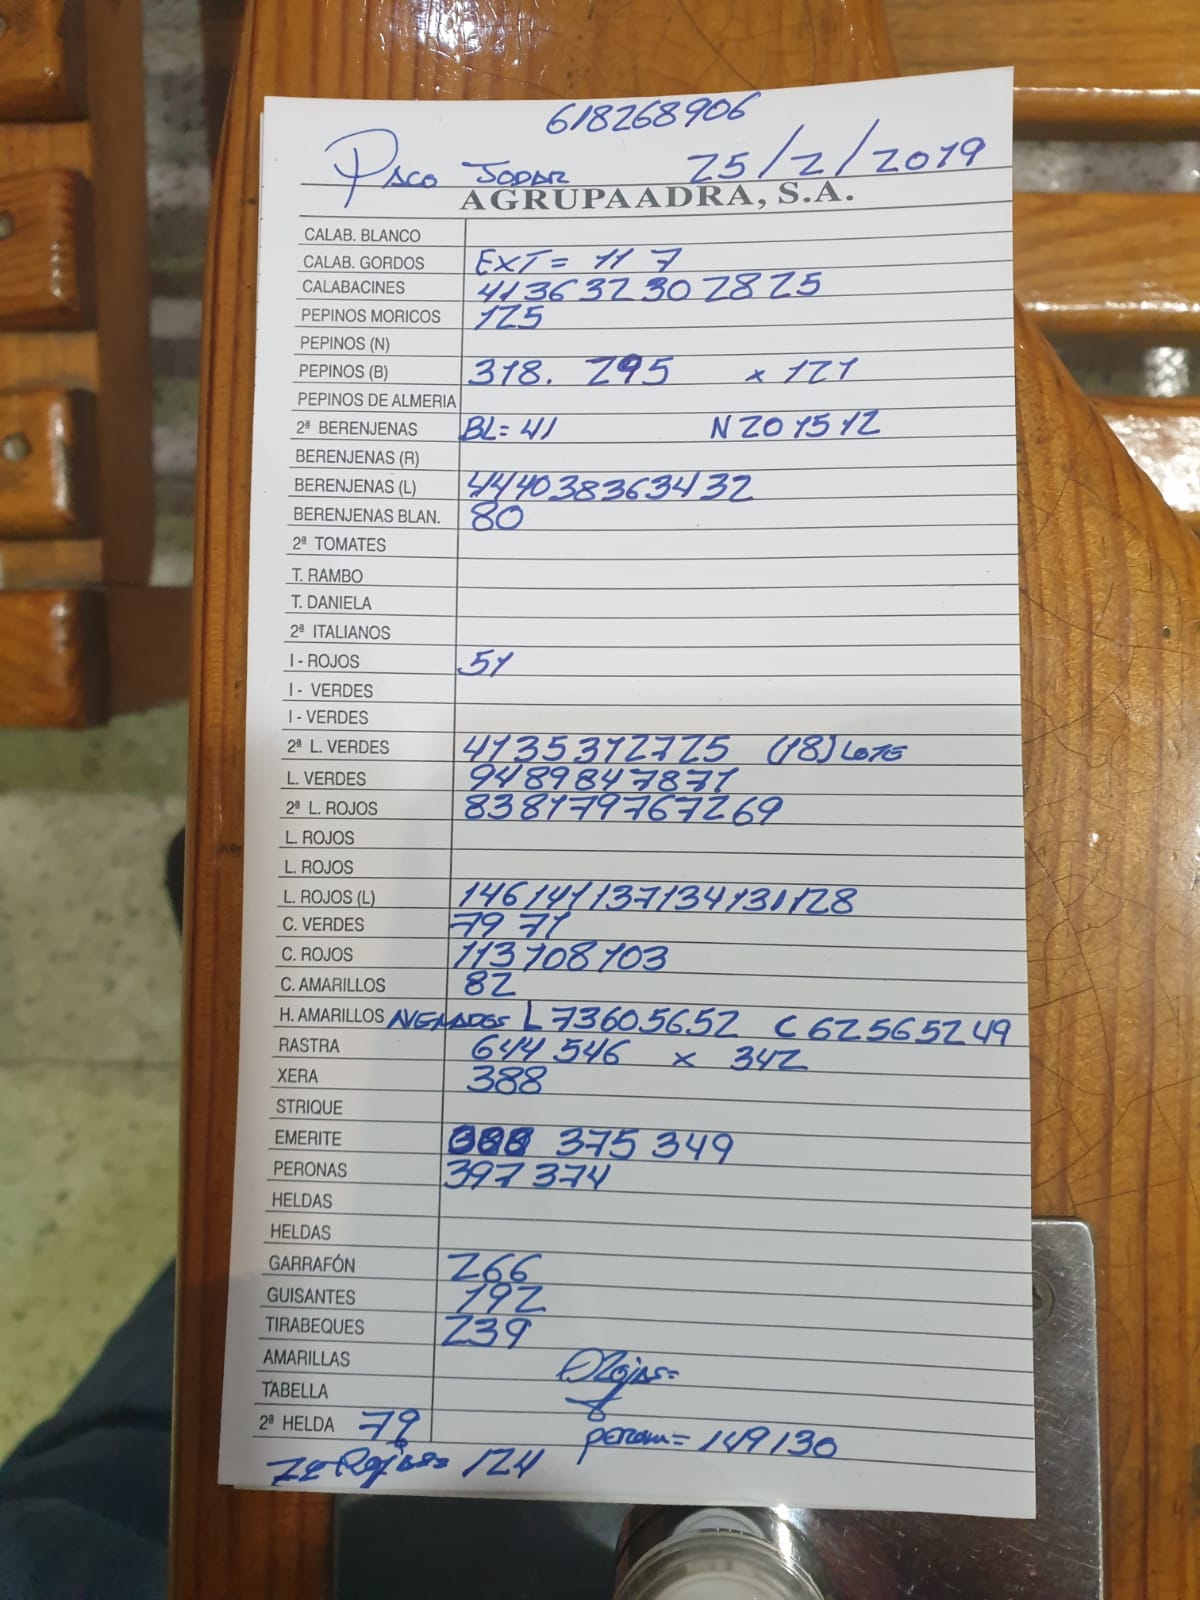 618268906
Paco Jodar 25/2/2019
AGRUPAADRA, S.A.
CALAB. BLANCO
CALAB. GORDOS EXT = 11 7
CALABACINES 41 36 32 30 28 25
PEPINOS MORICOS 125
PEPINOS (N)
PEPINOS (B) 318. 295 x 121
PEPINOS DE ALMERIA
2ª BERENJENAS BL= 41 N 20 15 12
BERENJENAS (R)
BERENJENAS (L) 44 40 38 36 34 32
BERENJENAS BLAN. 80
2ª TOMATES
T. RAMBO
T. DANIELA
2ª ITALIANOS
I - ROJOS 51
I - VERDES
I - VERDES
2ª L. VERDES 41 35 31 27 25 (18) LOTE
L. VERDES 94 89 84 78 71
2ª L. ROJOS 83 81 79 76 72 69
L. ROJOS
L. ROJOS
L. ROJOS (L) 146 141 137 134 131 128
C. VERDES 79 71
C. ROJOS 113 108 103
C. AMARILLOS 82
H. AMARILLOS L 73 60 56 52 C 62 56 52 49
RASTRA 644 546 x 342
XERA 388
STRIQUE
EMERITE 375 349
PERONAS 397 374
HELDAS
HELDAS
GARRAFÓN 266
GUISANTES 192
TIRABEQUES 239
AMARILLAS
TABELLA
2ª HELDA 79
perona= 149 130
2ª Rojas= 124